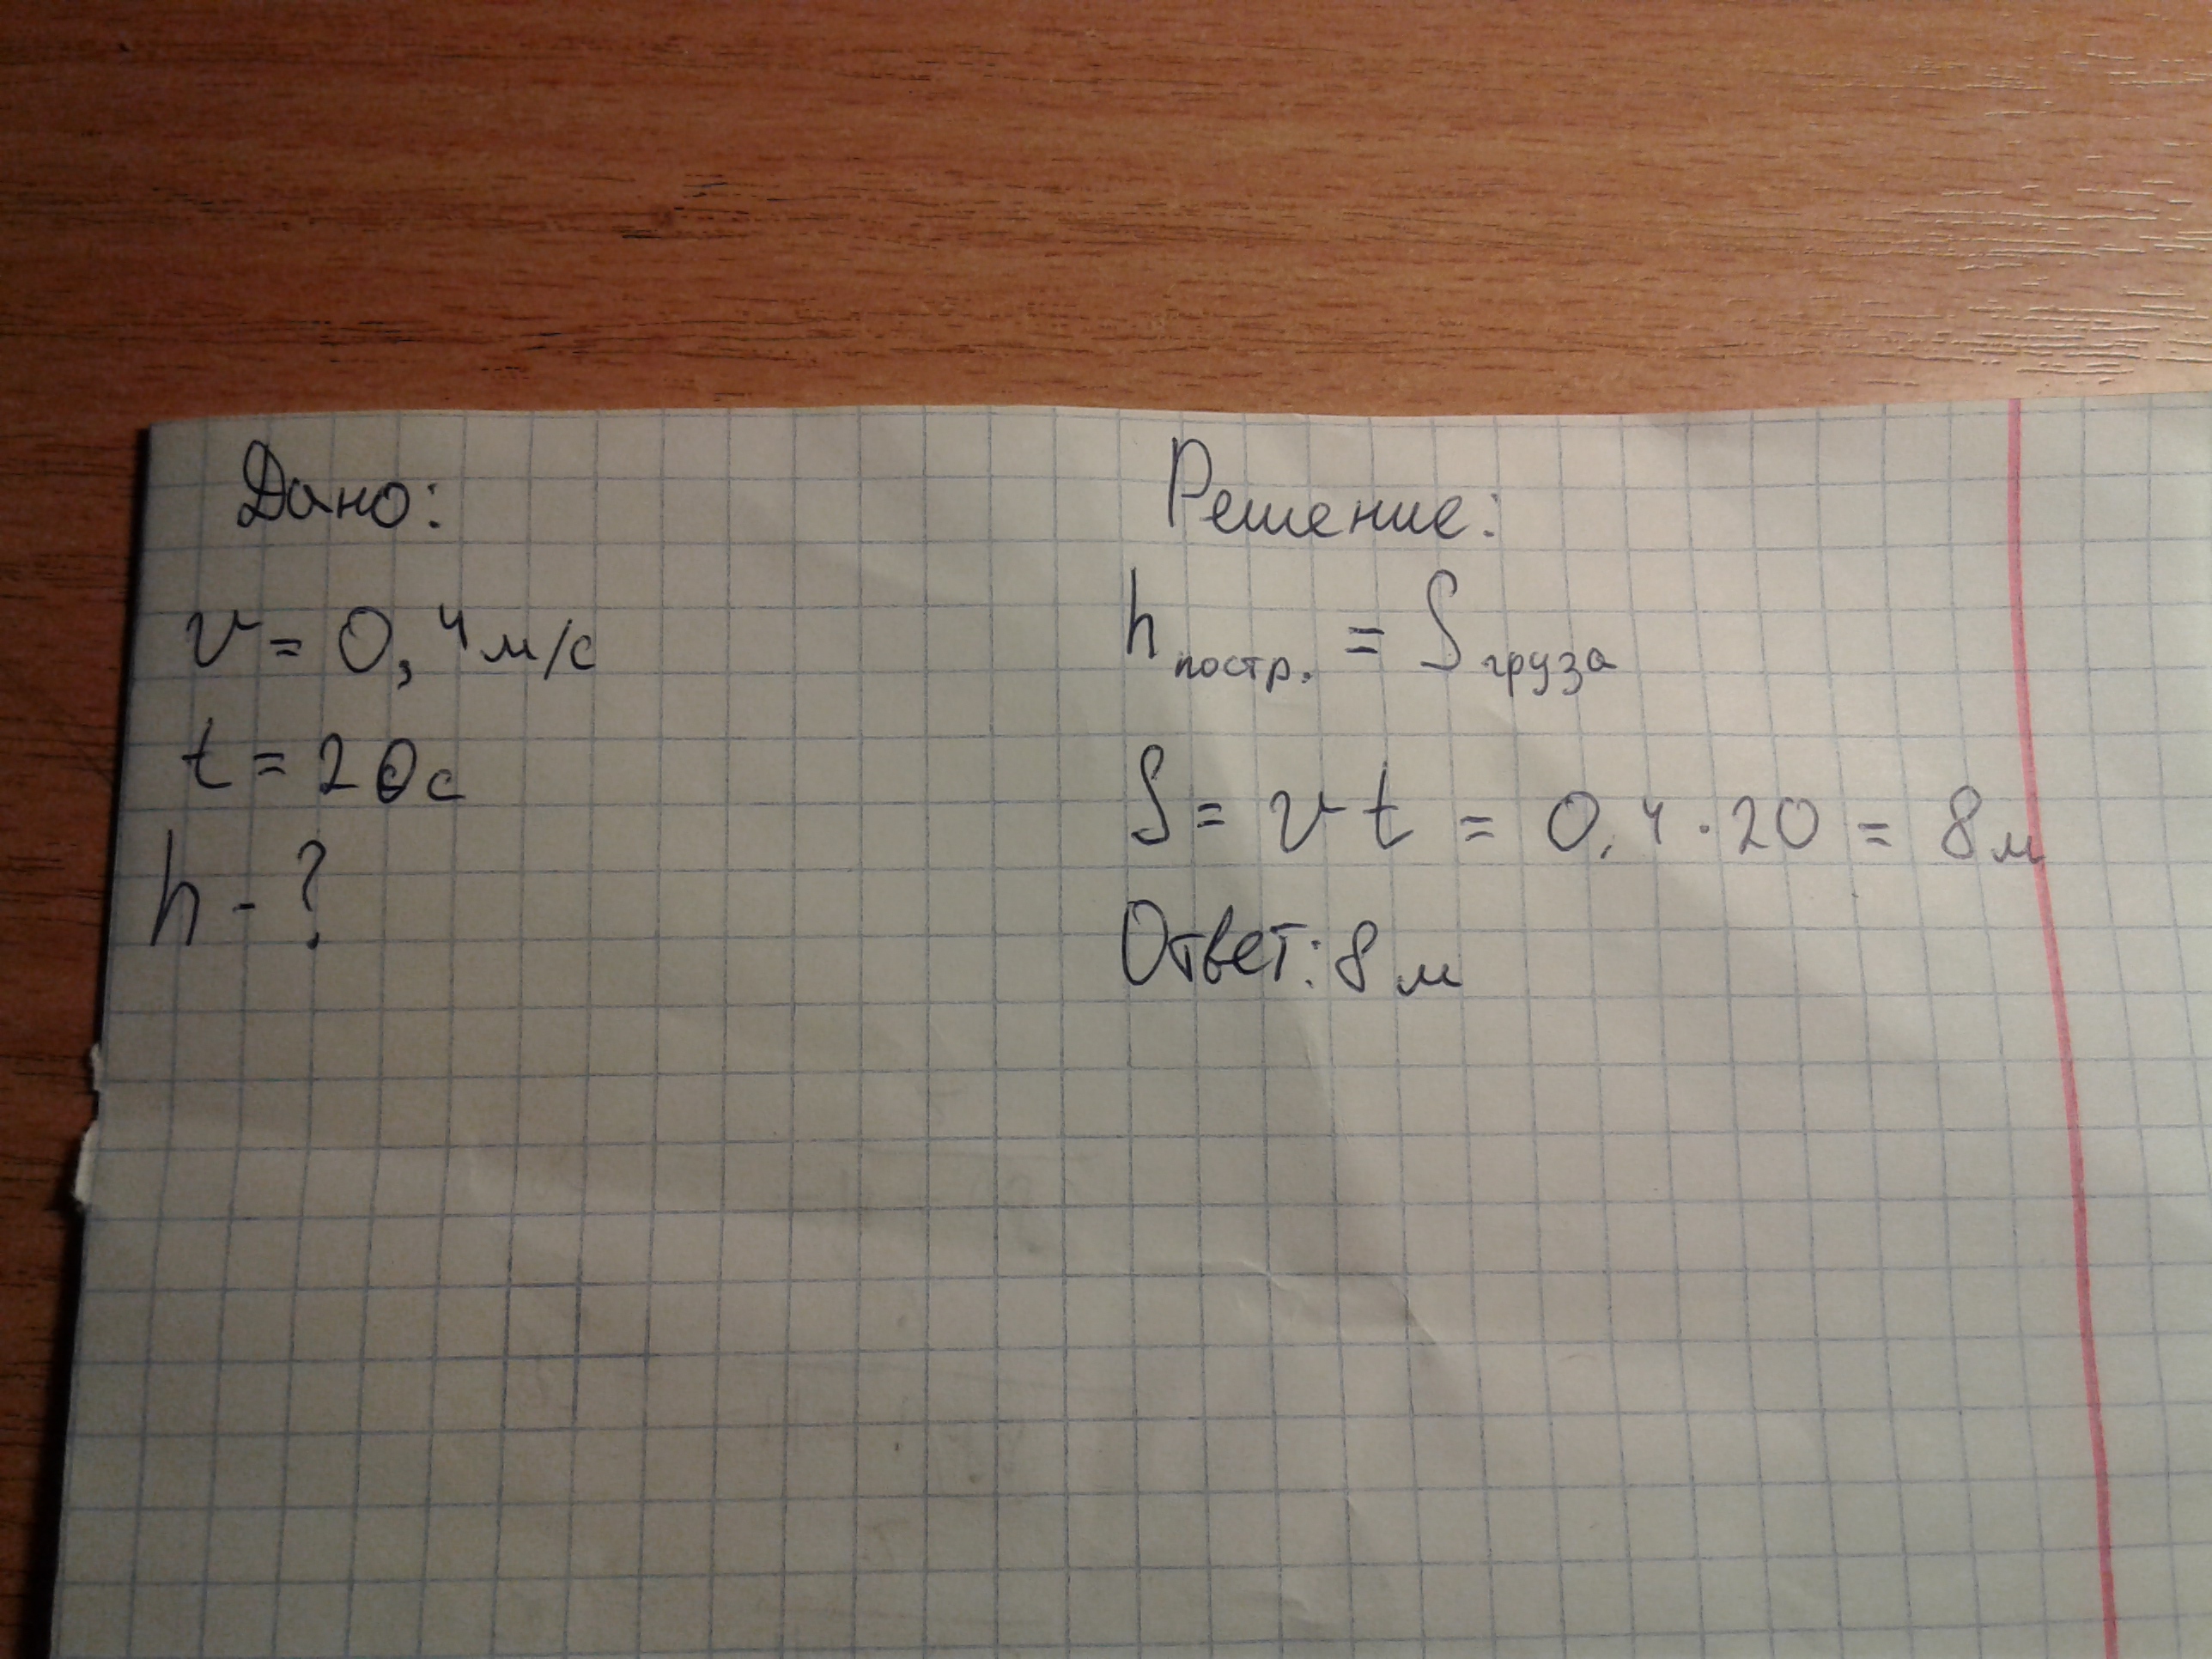 Дано:
v = 0,4 м/с
t = 20 с
h - ?
Решение:
h постр. = S груза
S = v t = 0,4 · 20 = 8 м
Ответ: 8 м